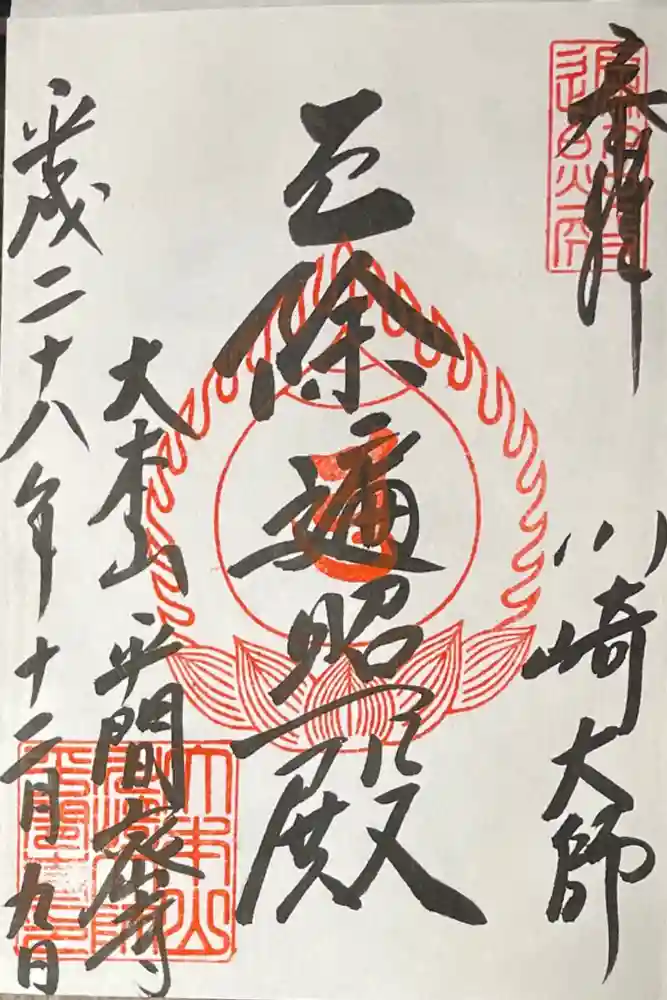 奉拝
川崎大師
厄除遍照殿
大本山 平間寺
平成二十八年十二月九日